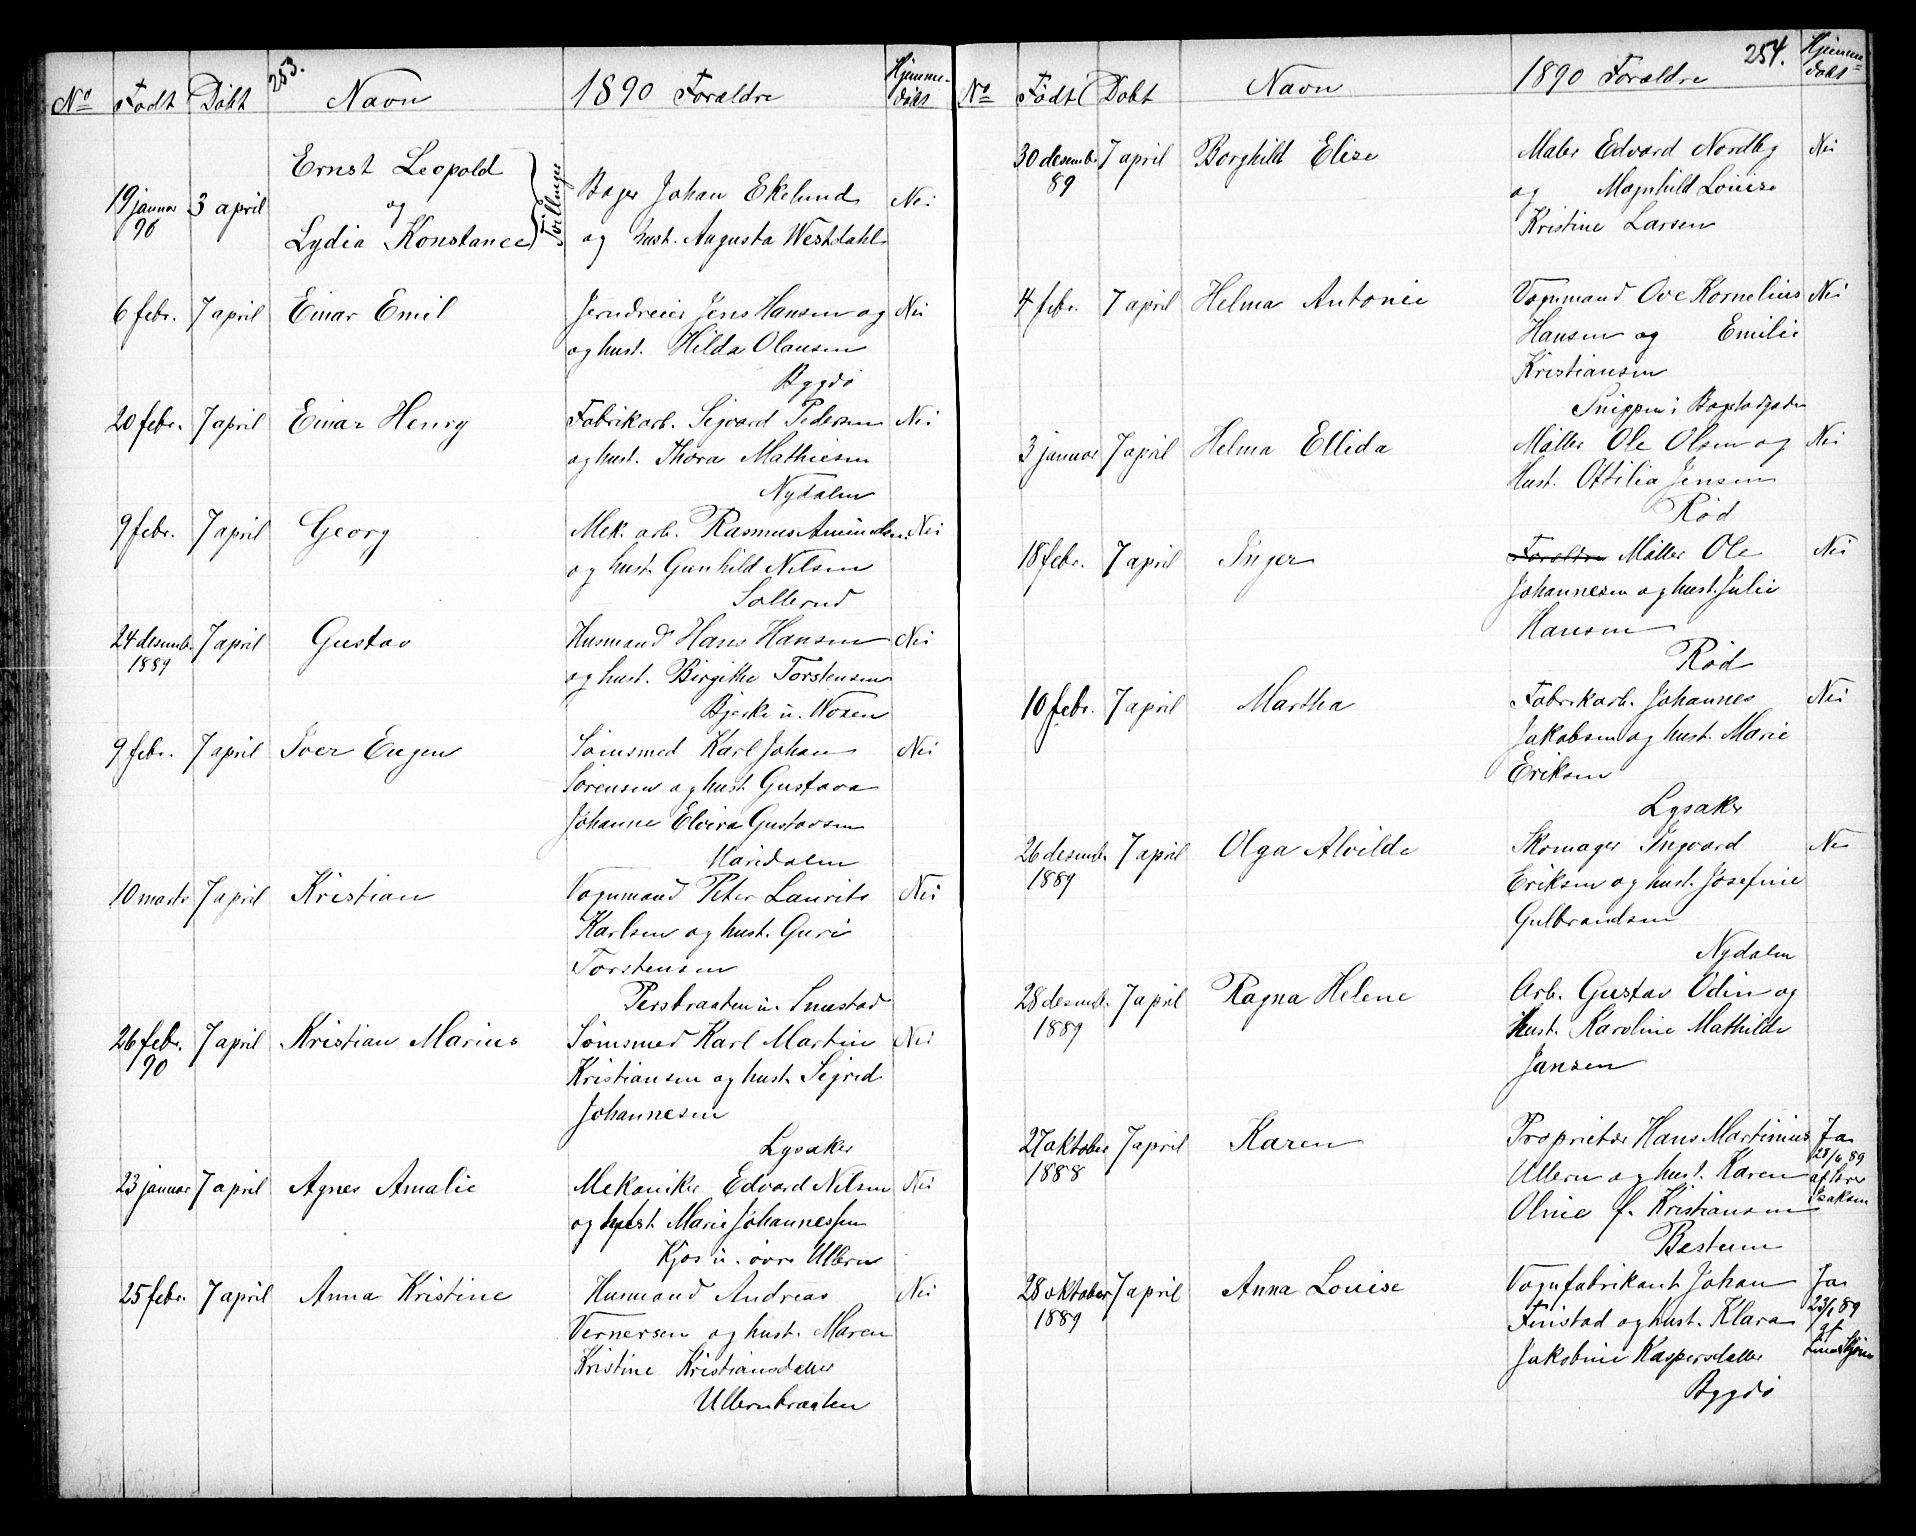 253.
No Født Døbt Navn 1890 Foraldre Hjemme-
døbt
Ernst Leopold
19 januar 3 april og Bager Johan Ekelund Nei
90 Lydia Konstance Tvillinger og hust. Augusta Westdahl
6 febr. 7 april Einar Emil Jerndreier Jens Hansen og Nei
og hust. Hilda Olausen
Bygdø
20 febr. 7 april Einar Henry Fabrikarb. Sigvard Pedersen Nei
og hust. Thora Mathiesen
Nydalen
9 febr. 7 april Georg Mek. arb. Rasmus Amundsen Nei
og hust. Gunhild Nilsen
Sollerud
24 desember 7 april Gustav Husmand Hans Hansen Nei
1889 og hust. Birgithe Torstensen
Bjerke u. Voxen
9 febr. 7 april Iver Eugen Sømsmed Karl Johan Nei
Sørensen og hust. Gustava
Johanne Elvira Gustavsen
Maridalen
10 marts 7 april Kristian Vognmand Peter Laurits Nei
Karlsen og hust. Guri
Torstensen
Persbraaten u. Smestad
26 febr. 7 april Kristian Marius Sømsmed Karl Martin Nei
90 Kristiansen og hust. Sigrid
Johannesen
Lysaker
23 januar 7 april Agnes Amalie Mekaniker Edvard Nilsen Nei
og hust. Marie Johannessen
Kjos u. øvre Ullern
25 febr. 7 april Anna Kristine Husmand Andreas Nei
Vernersen og hust. Maren
Kristine Kristiansdatter
Ullernbraaten
254.
No Født Døbt Navn 1890 Foraldre Hjemme-
døbt
30 desember 7 april Borghild Elise Maler Edvard Nordby Nei
89 og Magnhild Louise
Kristine Larsen
4 febr. 7 april Helma Antonie Vognmand Ove Kornelius Nei
Hansen og Emilie
Kristiansen
Snippen i Bogstadgaden
3 januar 7 april Helma Ellida Møller Ole Olsen og Nei
Hust. Ottilia Jensen
Rød
18 febr. 7 april Inger Foraldre Møller Ole Nei
Johannesen og hust. Julie
Hansen
Rød
10 febr. 7 april Martha Fabrikarb. Johannes Nei
Jakobsen og hust. Marie
Eriksen
Lysaker
26 desember 7 april Olga Alvilde Skomager Ingvard Nei
1889 Eriksen og hust. Josefine
Gulbrandsen
Nydalen
28 desemb. 7 april Ragna Helene Arb. Gustav Odin og
1889 hust. Karoline Mathilde
Jansen
27 oktober 7 april Karen Proprietær Hans Martinius Ja
1888 Ullern og hust. Karen af
Oline f. Kristiansen Isaksen
Bestum
28 oktober 7 april Anna Louise Vognfabrikant Johan Ja
1889 Finstad og hust. Klara af
Jakobine Kaspersdatter
Bygdø